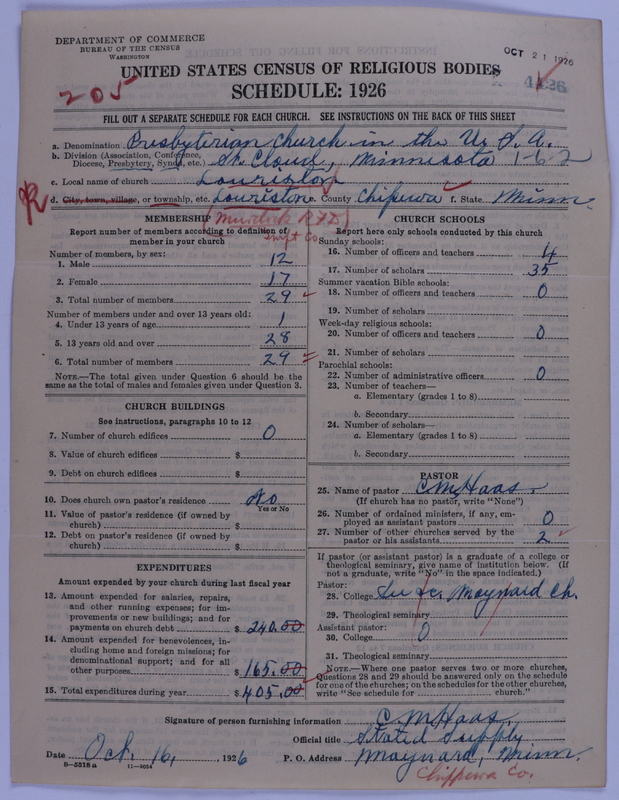 DEPARTMENT OF COMMERCE
BUREAU OF THE CENSUS
WASHINGTON
OCT 21 1926
205
UNITED STATES CENSUS OF RELIGIOUS BODIES
SCHEDULE: 1926
FILL OUT A SEPARATE SCHEDULE FOR EACH CHURCH. SEE INSTRUCTIONS ON THE BACK OF THIS SHEET
a. Denomination Presbyterian Church in the U. S. A.
b. Division (Association, Conference, Diocese, Presbytery, Synod, etc.) St. Cloud, Minnesota 1-62
c. Local name of church Louriston
d. City, town, village, or township, etc. Louriston e. County Chipewa f. State Minn.
Murdock R.F.D.
Swift Co
MEMBERSHIP
Report number of members according to definition of
member in your church
Number of members, by sex:
1. Male 12
2. Female 17
3. Total number of members 29
Number of members under and over 13 years old:
4. Under 13 years of age 1
5. 13 years old and over 28
6. Total number of members 29
NOTE.—The total given under Question 6 should be
same as the total of males and females given under Question 3.
CHURCH BUILDINGS
See instructions, paragraphs 10 to 12
7. Number of church edifices 0
8. Value of church edifices $
9. Debt on church edifices $
10. Does church own pastor's residence No
Yes or No
11. Value of pastor's residence (if owned by
church) $
12. Debt on pastor's residence (if owned by
church) $
EXPENDITURES
Amount expended by your church during last fiscal year
13. Amount expended for salaries, repairs,
and other running expenses; for im-
provements or new buildings; and for
payments on church debt $ 240.00
14. Amount expended for benevolences, in-
cluding home and foreign missions; for
denominational support; and for all
other purposes $ 165.00
15. Total expenditures during year $ 405.00
CHURCH SCHOOLS
Report here only schools conducted by this church
Sunday schools:
16. Number of officers and teachers 4
17. Number of scholars 35
Summer vacation Bible schools:
18. Number of officers and teachers 0
19. Number of scholars
Week-day religious schools:
20. Number of officers and teachers 0
21. Number of scholars
Parochial schools:
22. Number of administrative officers 0
23. Number of teachers—
a. Elementary (grades 1 to 8)
b. Secondary
24. Number of scholars—
a. Elementary (grades 1 to 8)
b. Secondary
PASTOR
25. Name of pastor C. M. Haas
(If church has no pastor, write "None")
26. Number of ordained ministers, if any, em-
ployed as assistant pastors 0
27. Number of other churches served by the
pastor or his assistants 2
If pastor (or assistant pastor) is a graduate of a college or
theological seminary, give name of institution below. (If
not a graduate, write "No" in the space indicated.)
Pastor:
28. College Maynard Ch.
29. Theological seminary
Assistant pastor:
30. College 0
31. Theological seminary
NOTE.—Where one pastor serves two or more churches,
Questions 28 and 29 should be answered only on the schedule
for one of the churches; on the schedules for the other churches,
write "See schedule for church."
Signature of person furnishing information C. M. Haas.
Official title Stated Supply
Date Oct. 16, 1926 P. O. Address Maynard, Minn.
Chippewa Co.
8-5318a 11-9034